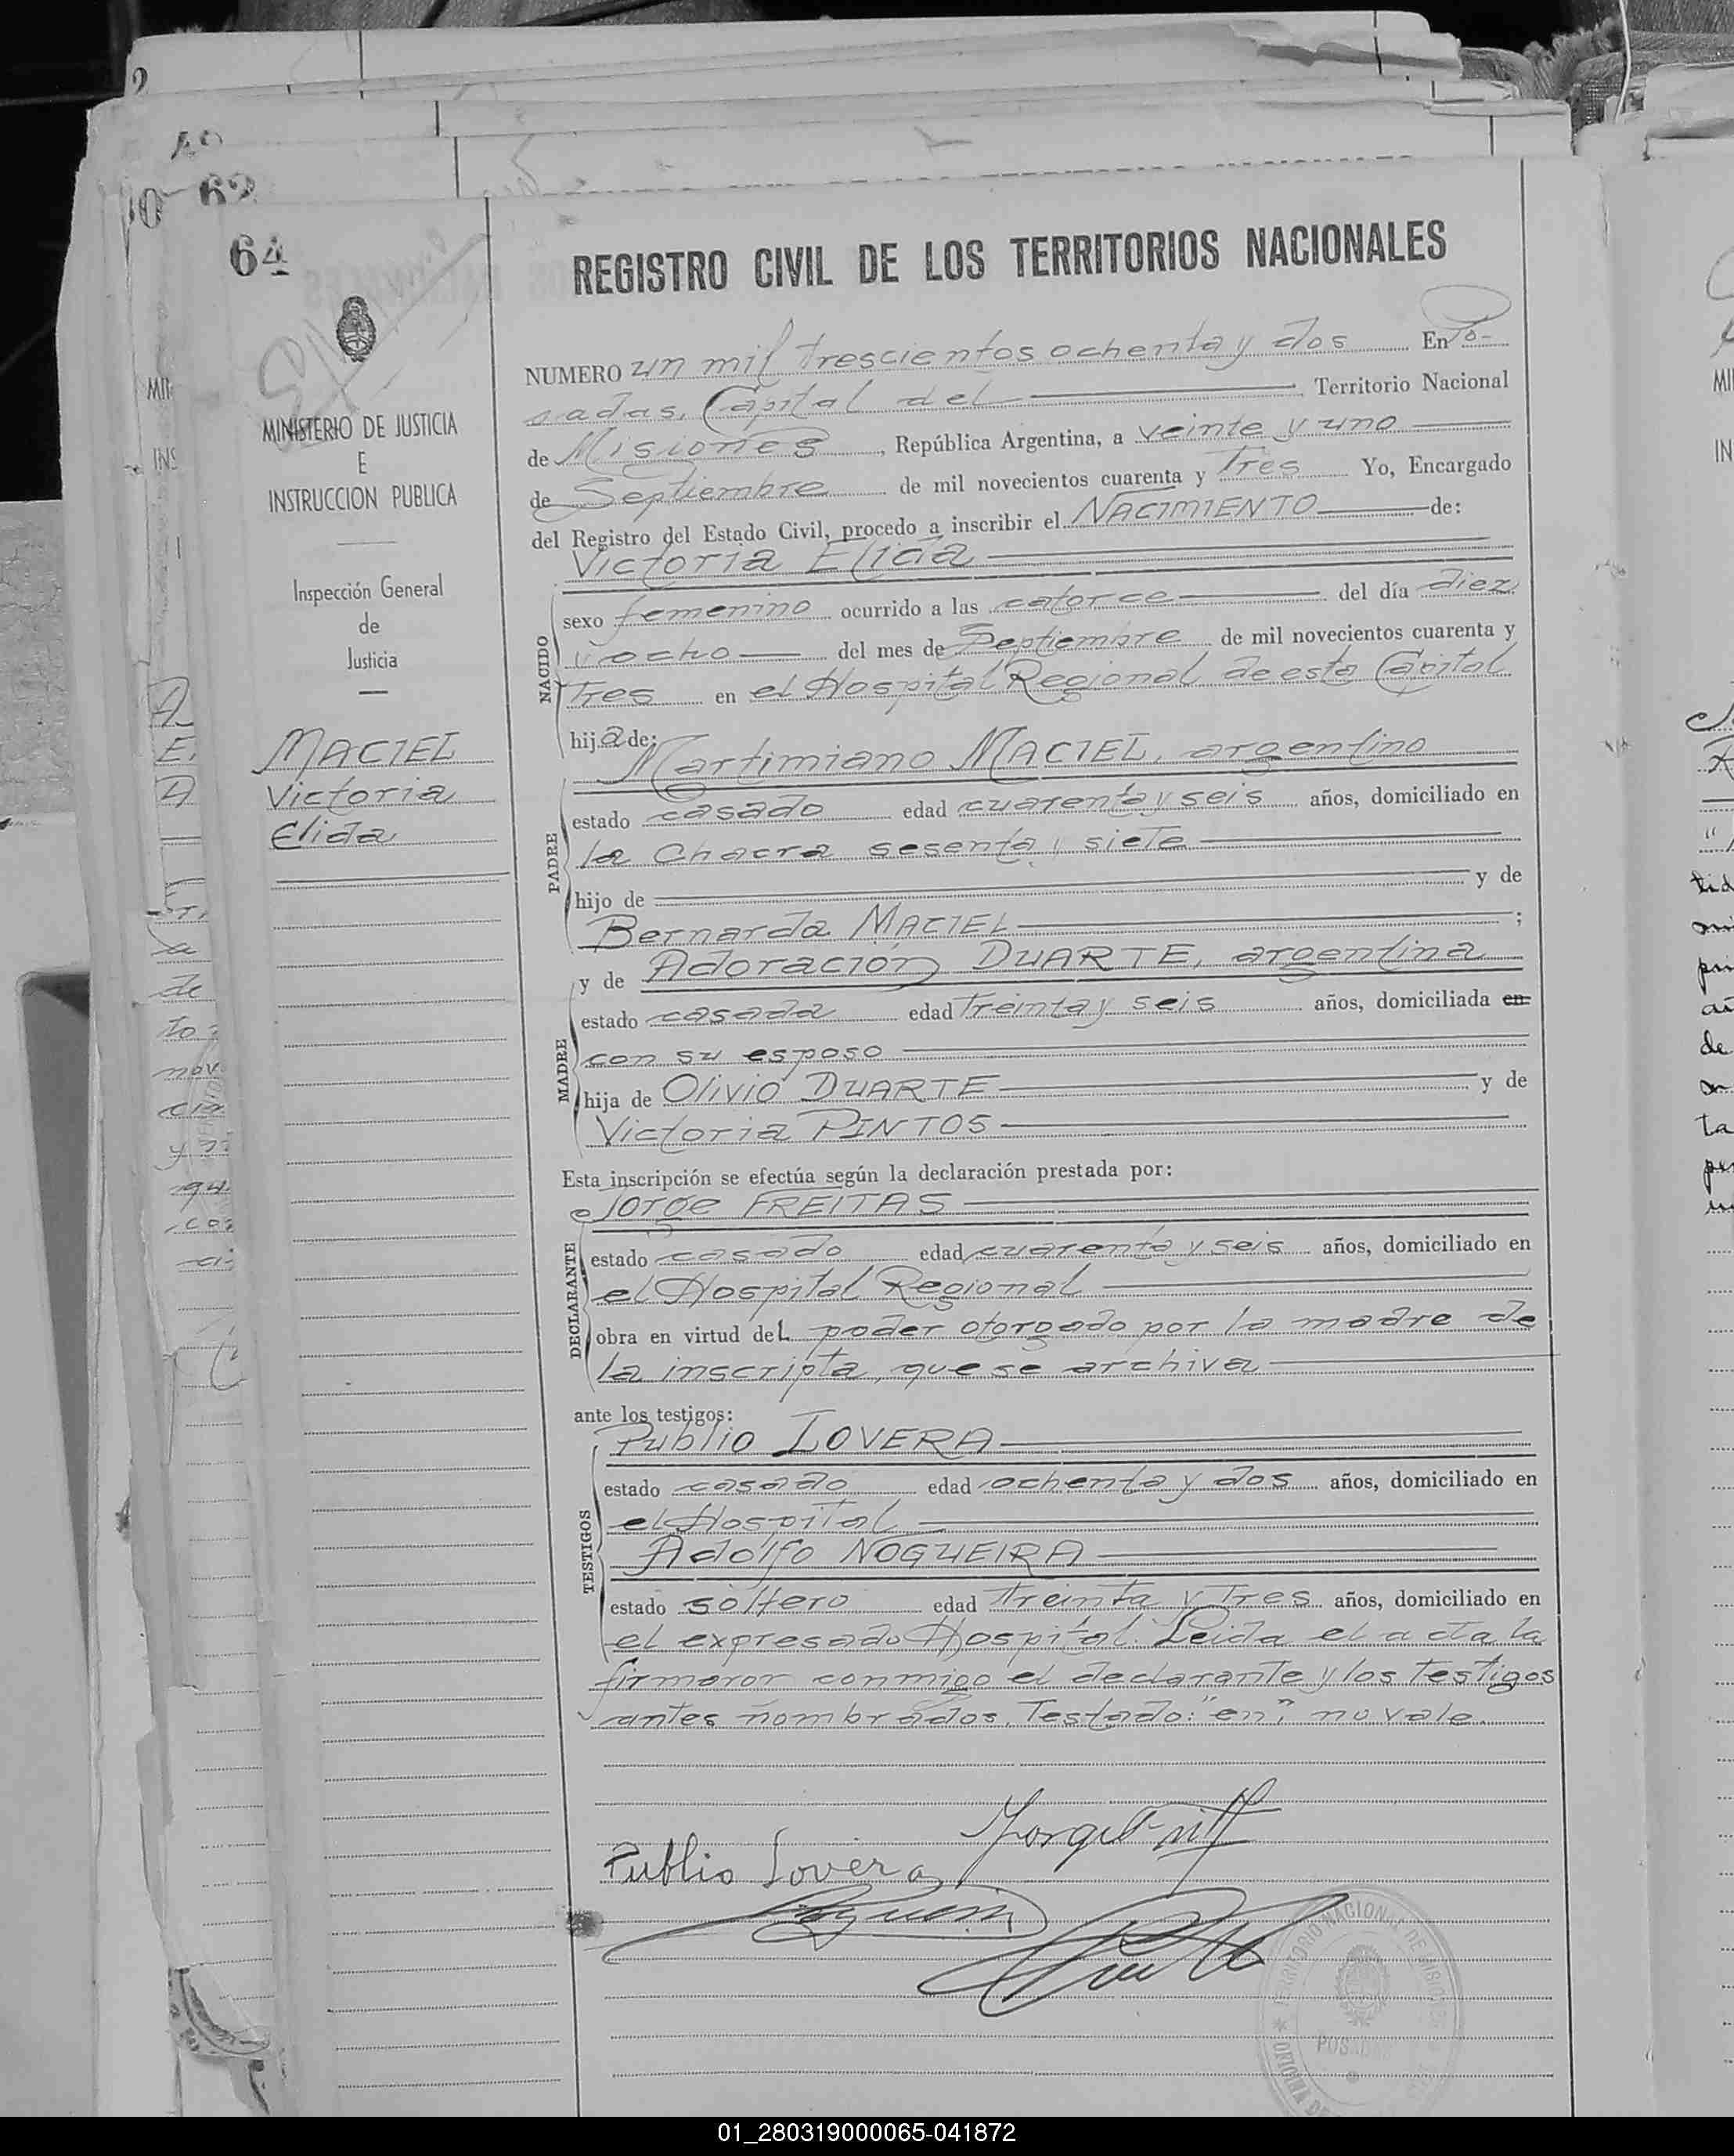 2
62
64
REGISTRO CIVIL DE LOS TERRITORIOS NACIONALES
MINISTERIO DE JUSTICIA
E
INSTRUCCION PUBLICA
Inspección General
de
Justicia
MACIEL
Victoria
Elida
NUMERO un mil trescientos ochenta y dos En Po-
sadas, Capital del Territorio Nacional
de Misiones, República Argentina, a veinte y uno
de Septiembre de mil novecientos cuarenta y Tres Yo, Encargado
del Registro del Estado Civil, procedo a inscribir el NACIMIENTO de:
Victoria Elida
NACIDO
sexo femenino ocurrido a las catorce del día diez
y ocho del mes de Septiembre de mil novecientos cuarenta y
Tres en el Hospital Regional de esta Capital
hija de:
Martimiano MACIEL, argentino
PADRE
estado casado edad cuarenta y seis años, domiciliado en
la Chacra sesenta y siete
hijo de y de
Bernarda MACIEL ;
y de Adoración DUARTE, argentina
MADRE
estado casada edad Treinta y seis años, domiciliada en
con su esposo
hija de Olivio DUARTE y de
Victoria PINTOS
Esta inscripción se efectúa según la declaración prestada por:
Jorge FREITAS
DECLARANTE
estado casado edad cuarenta y seis años, domiciliado en
el Hospital Regional
obra en virtud del poder otorgado por la madre de
la inscripta, que se archiva
ante los testigos:
Publio LOVERA
TESTIGOS
estado casado edad ochenta y dos años, domiciliado en
el Hospital
Adolfo NOGUEIRA
estado soltero edad Treinta y Tres años, domiciliado en
el expresado Hospital. Leida el acta la
firmaron conmigo el declarante y los testigos
antes nombrados. Testado: "en", no vale.
Publio Lovera
TERRITORIO NACIONAL DE MISIONES
POSADAS
01_280319000065-041872